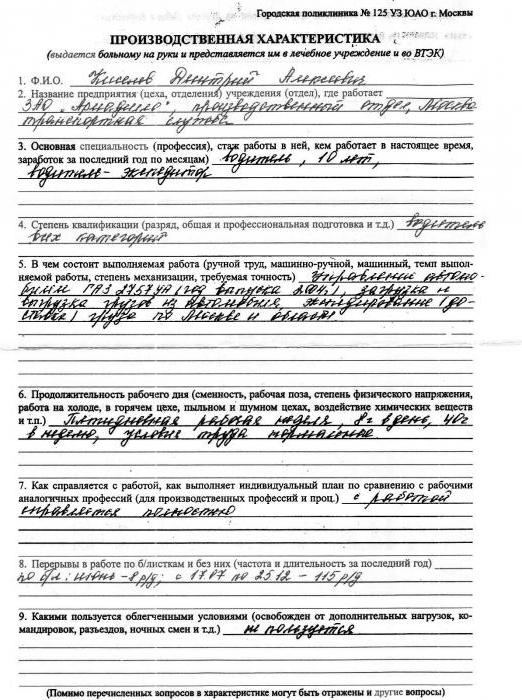 Городская поликлиника № 125 УЗ ЮАО г. Москвы
ПРОИЗВОДСТВЕННАЯ ХАРАКТЕРИСТИКА
(выдается больному на руки и представляется им в лечебное учреждение и во ВТЭК)
1. Ф.И.О. Киселов Дмитрий Алексевич
2. Название предприятия (цеха, отделения) учреждения (отдел), где работает
ЗАО " производственный отдел, Москва
транспортная служба
3. Основная специальность (профессия), стаж работы в ней, кем работает в настоящее время,
заработок за последний год по месяцам) водитель, 10 лет,
водитель-экспедитор
4. Степень квалификации (разряд, общая и профессиональная подготовка и т.д.) водитель
всех категорий
5. В чем состоит выполняемая работа (ручной труд, машинно-ручной, машинный, темп выпол-
няемой работы, степень механизации, требуемая точность) Управление автомо-
билем ГАЗ 2757УА (год выпуска 2004), загрузка и
выгрузка грузов из автомобиля, экспедирование (до-
ставка) груза по Москве и области
6. Продолжительность рабочего дня (сменность, рабочая поза, степень физического напряжения,
работа на холоде, в горячем цехе, пыльном и шумном цехах, воздействие химических веществ
и т.п.) Пятидневная рабочая неделя, 8ч в день, 40ч
в неделю, условия труда нормальные
7. Как справляется с работой, как выполняет индивидуальный план по сравнению с рабочими
аналогичных профессий (для производственных профессий и проц.) с работой
справляется полностью
8. Перерывы в работе по б/листкам и без них (частота и длительность за последний год)
по б/л: июнь - 8 р/д; с 17.07 по 25.12 - 115 р/д
9. Какими пользуется облегченными условиями (освобожден от дополнительных нагрузок, ко-
мандировок, разъездов, ночных смен и т.д.) не пользуется
(Помимо перечисленных вопросов в характеристике могут быть отражены и другие вопросы)